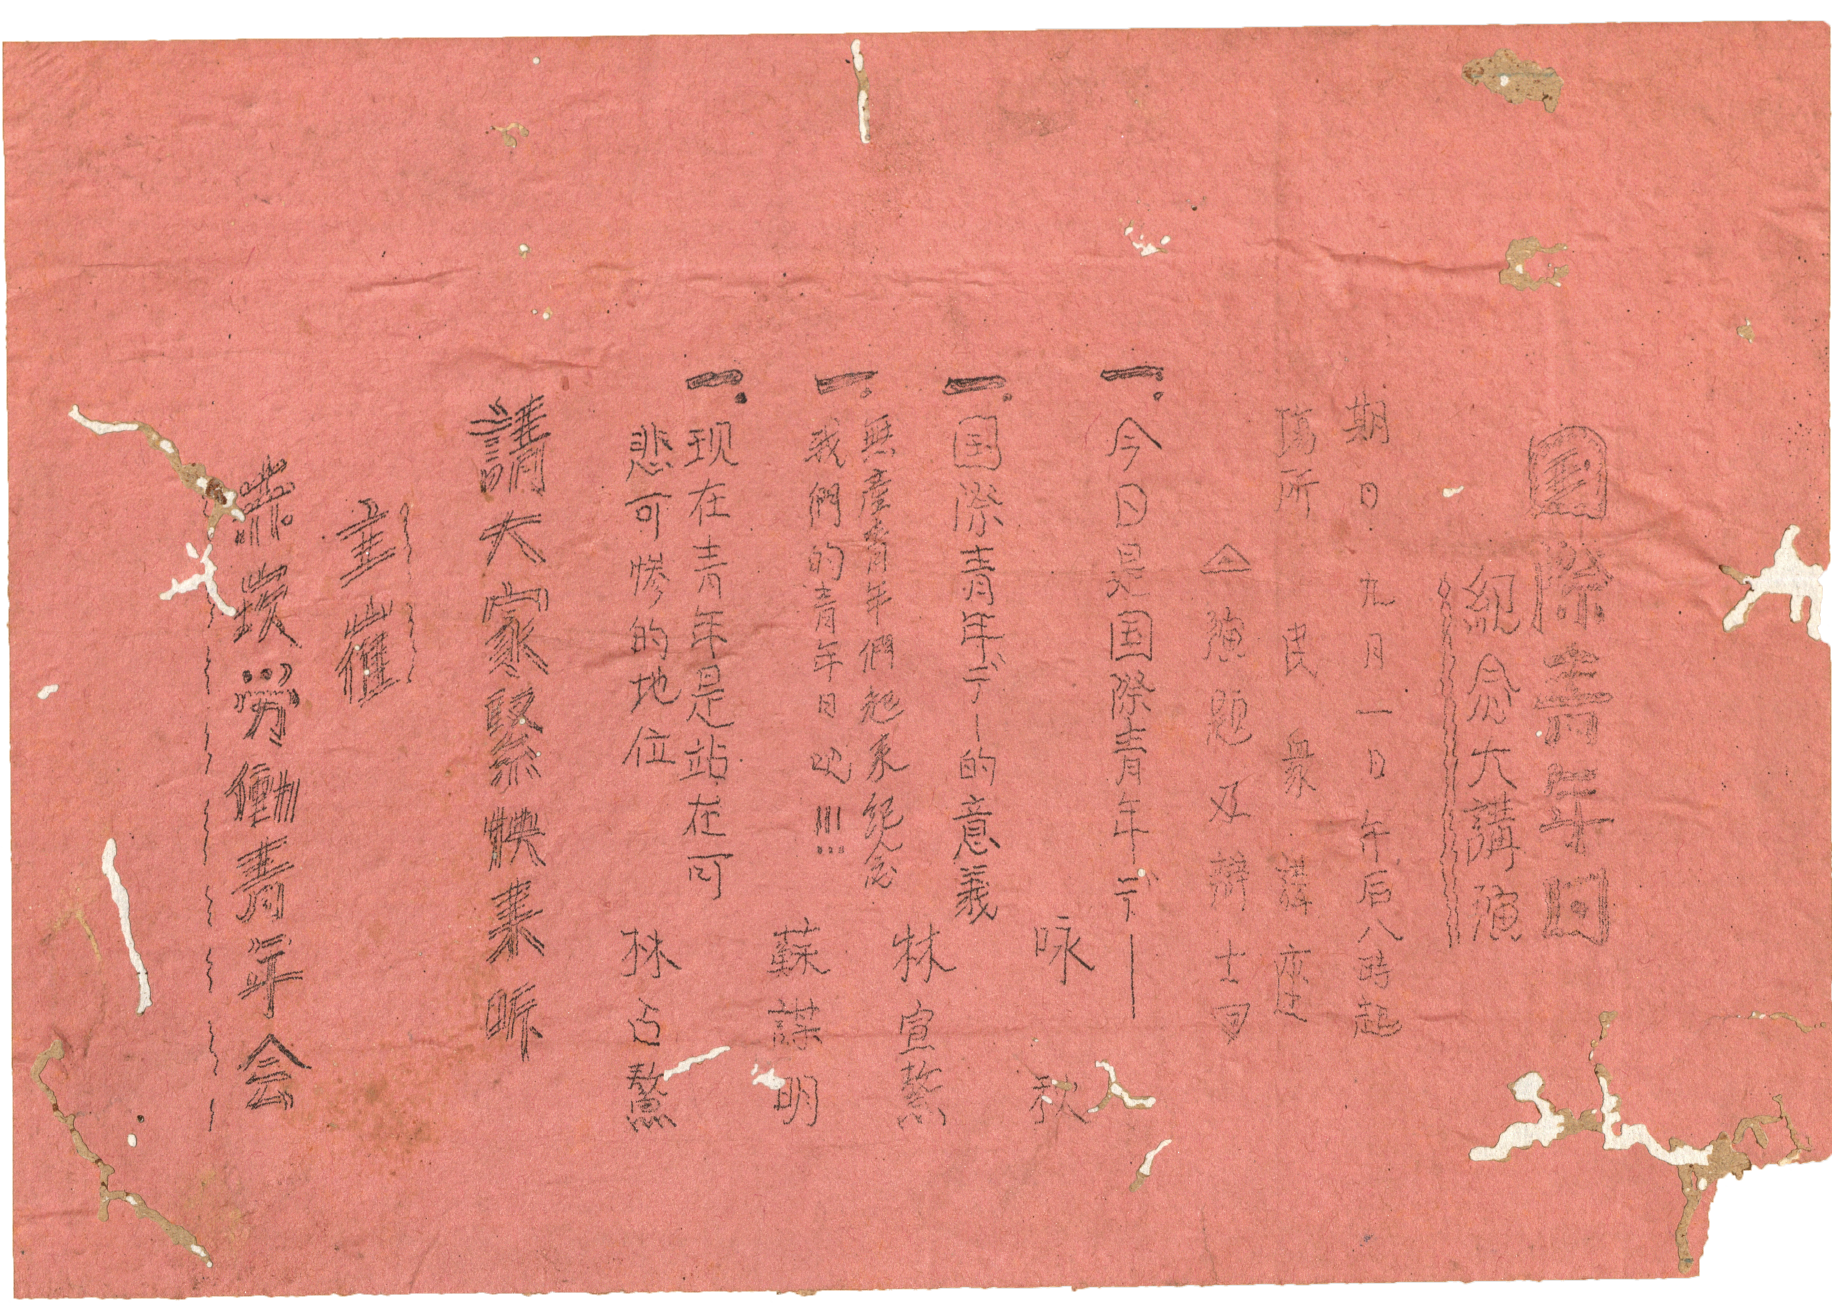 國際青年日
紀念大講演
期日 九月一日午后八時起
場所 民衆講座
△演題及辯士
一.今日是国際青年デー
咏 秋
一.国際青年デー的意義
林宣鰲
一.無產青年們起來紀念
我們的青年日吧!!!
蘇謀明
一.现在青年是站在可
悲可慘的地位
林占鰲
請大家緊緊快來听
主催
赤崁勞働青年会